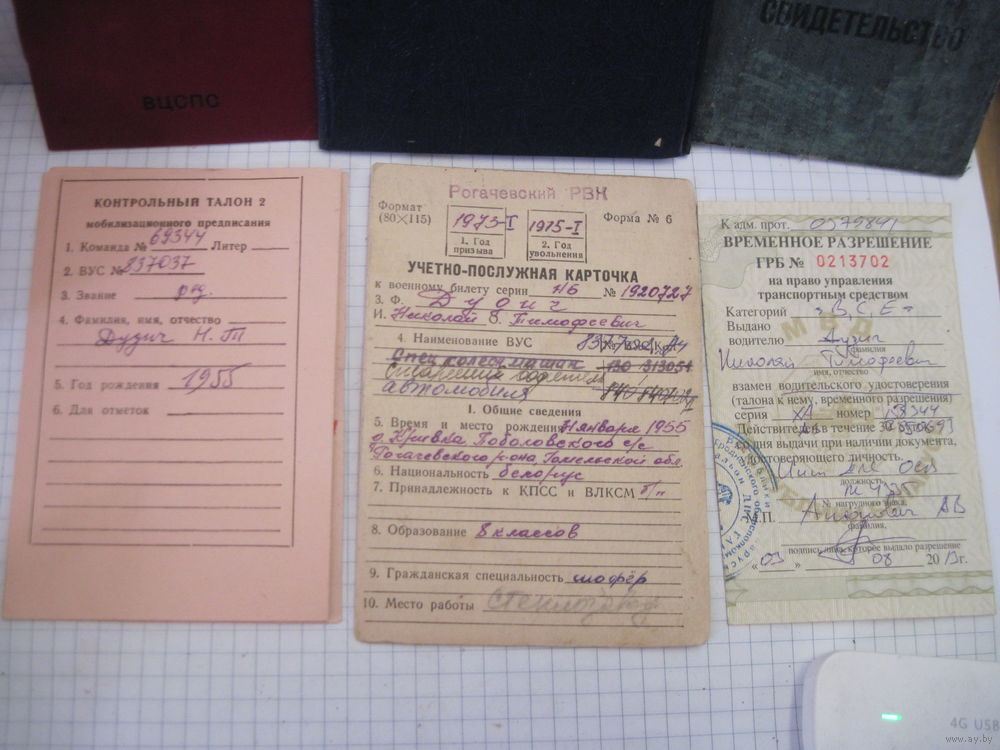 ВЦСПС
СВИДЕТЕЛЬСТВО
КОНТРОЛЬНЫЙ ТАЛОН 2
мобилизационного предписания
1. Команда № 69344 Литер
2. ВУС № 837037
3. Звание ряд.
4. Фамилия, имя, отчество
Дудич Н. Т
5. Год рождения 1955
6. Для отметок
Рогачевский РВК
Формат
(80×115)
1973-I
1. Год
призыва
1975-I
2. Год
увольнения
Форма № 6
УЧЕТНО-ПОСЛУЖНАЯ КАРТОЧКА
к военному билету серии НБ № 1920727
3. Ф. Дудич
И. Николай О. Тимофеевич
4. Наименование ВУС
автомобиля
I. Общие сведения
5. Время и место рождения января 1955
д. Кривка Поболовского с/с
Рогачевского р-она, Гомельской обл.
6. Национальность белорус
7. Принадлежность к КПСС и ВЛКСМ б/п
8. Образование 8 классов
9. Гражданская специальность шофёр
10. Место работы Стеклозавод
К адм. прот. 0379841
ВРЕМЕННОЕ РАЗРЕШЕНИЕ
ГРБ № 0213702
на право управления
транспортным средством
Категорий "В, С, Е"
Выдано
водителю Дудич
фамилия
Николай Тимофеевич
имя, отчество
взамен водительского удостоверения
(талона к нему, временного разрешения)
серия ХА номер
Действителен в течение
со дня выдачи при наличии документа,
удостоверяющего личность.
должность
№ нагрудного знака,
М.П. АВ
фамилия,
подпись лица, которое выдало разрешение
«03» 08 2013г.
4G USB
www.ay.by